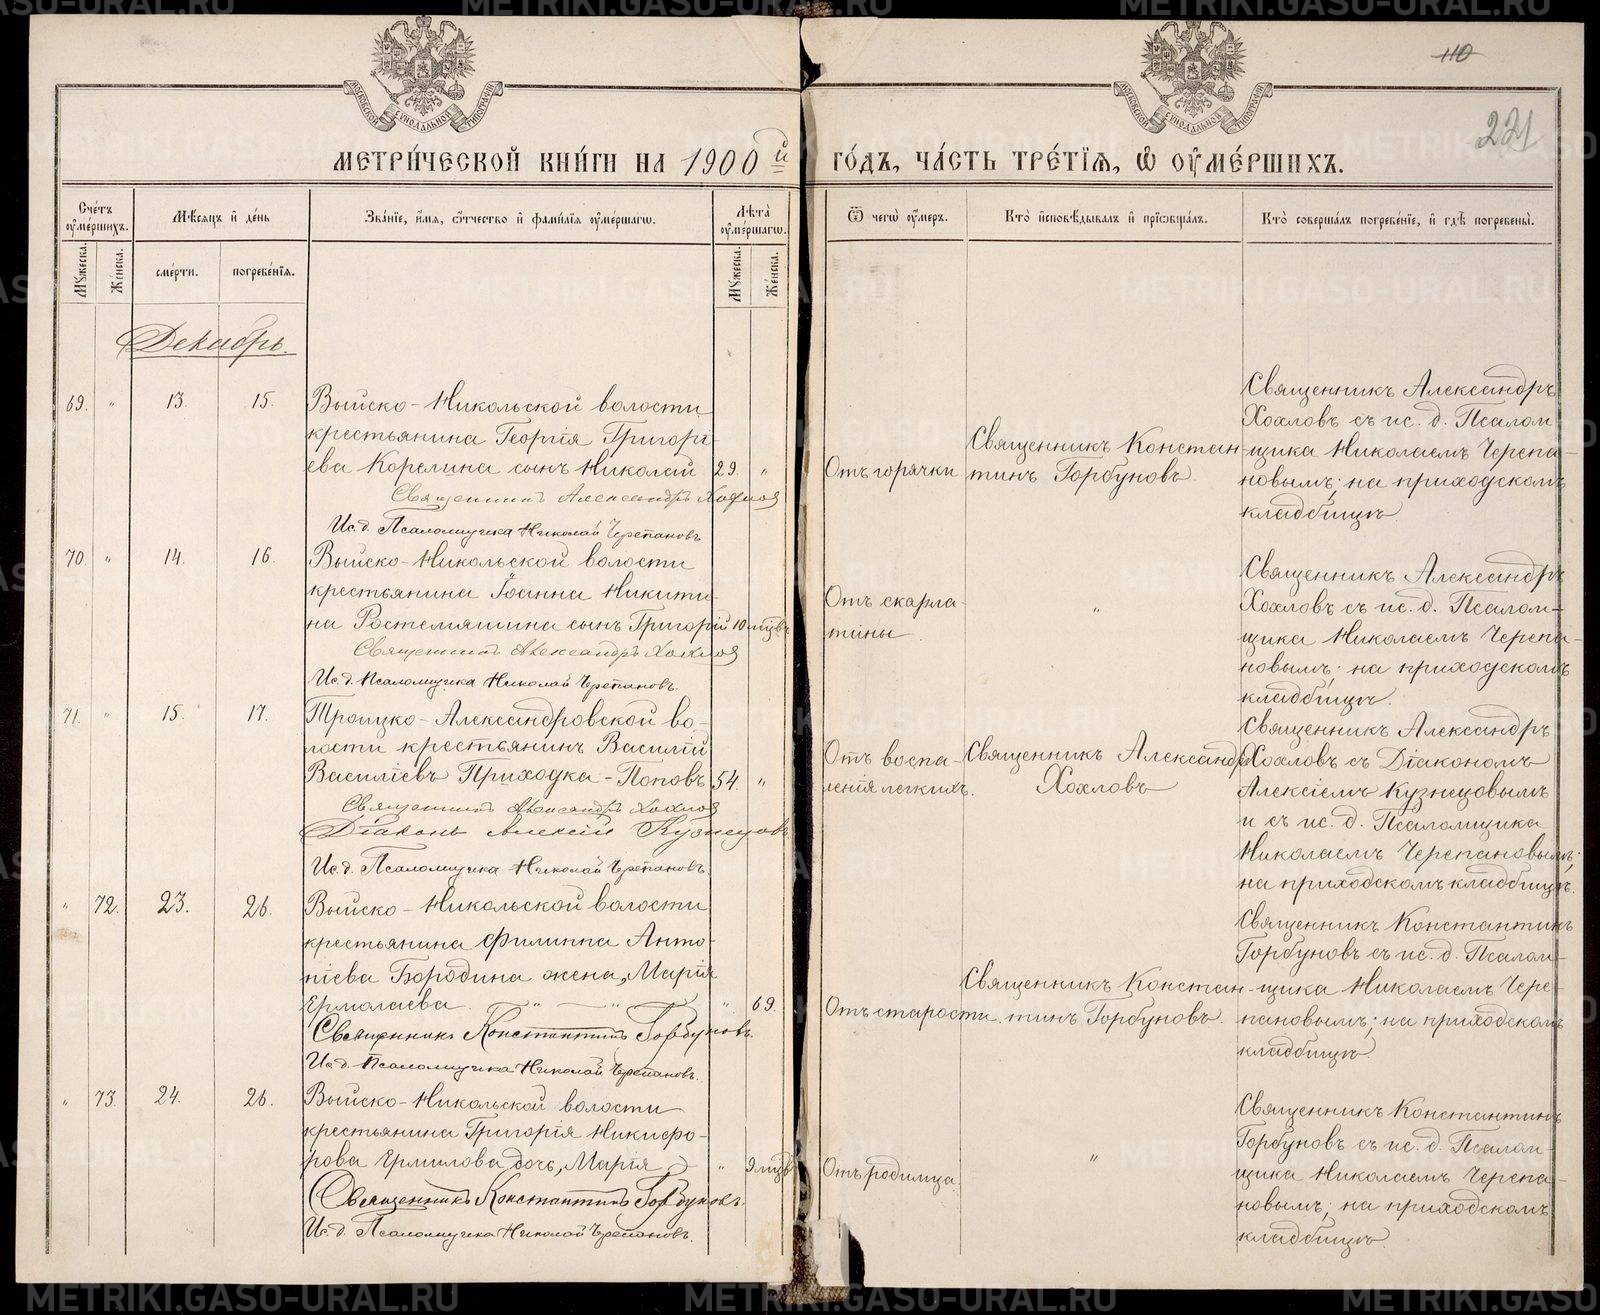 110
221
МОСКОВСКОЙ СѴНОДАЛЬНОЙ ТИПОГРАФІИ
МОСКОВСКОЙ СѴНОДАЛЬНОЙ ТИПОГРАФІИ
МЕТРИ́ЧЕСКОЙ КНИ́ГИ НА 1900й ГО́ДЪ, ЧА́СТЬ ТРЕ́ТЇѦ, Ѡ҆ ОУ҆МЕ́РШИХЪ.
Сче́тъ оу҆ме́ршихъ.
Мѣ́сяцъ и҆ де́нь
Зва́нїе, и҆́мя, ѻ҆́тчество и҆ фами́лїя оу҆ме́ршагѡ.
Лѣ́та оу҆ме́ршагѡ.
Ѿ чегѡ̀ оу҆́меръ.
Кто̀ и҆сповѣ́дывалъ и҆ прїѡбща́лъ.
Кто̀ соверша́лъ погребе́нїе, и҆ гдѣ̀ погребены̀.
Мꙋ́жеска.
Же́нска.
сме́рти.
погребе́нїя.
Мꙋ́жеска.
Же́нска.
Декабрь.
69. " 13. 15.
Выйско-Никольской волости
крестьянина Георгія Григорі-
ева Корелина сынъ Николай 29. "
Священникъ Александръ Хохлов
Ис. д. Псаломщика Николай Черепановъ
Отъ горячки
Священникъ Констан-
тинъ Горбуновъ
Священникъ Александръ
Хохловъ съ ис. д. Псалом
щика Николаемъ Черепа-
новымъ; на приходскомъ
кладбищѣ
70. " 14. 16.
Выйско-Никольской волости
крестьянина Іоанна Никити-
на Ростемяшина сынъ Григорій 10 мцвъ
Священникъ Александръ Хохлов
Ис. д. Псаломщика Николай Черепановъ.
Отъ скарла-
тины
"
Священникъ Александръ
Хохловъ съ ис. д. Псалом-
щика Николаемъ Черепа-
новымъ; на приходскомъ
кладбищѣ.
71. " 15. 17.
Троицко-Александровской во-
лости крестьянинъ Василій
Василіевъ Приходка-Поповъ 54. "
Священникъ Александръ Хохлов
Діаконъ Алексій Кузнецовъ
Ис. д. Псаломщика Николай Черепановъ
Отъ воспа-
ленія легкихъ.
Священникъ Александръ
Хохловъ
Священникъ Александръ
Хохловъ съ Діакономъ
Алексіемъ Кузнецовымъ
и съ ис. д. Псаломщика
Николаемъ Черепановымъ;
на приходскомъ кладбищѣ.
" 72. 23. 26.
Выйско-Никольской волости
крестьянина Филиппа Анто-
ніева Бородина жена, Марія
Ермолаева " 69.
Священникъ Константинъ Горбуновъ.
Ис. д. Псаломщика Николай Черепановъ.
Отъ старости.
Священникъ Констан-
тинъ Горбуновъ.
Священникъ Константинъ
Горбуновъ съ ис. д. Псалом-
щика Николаемъ Чере-
пановымъ; на приходскомъ
кладбищѣ
" 73. 24. 26.
Выйско-Никольской волости
крестьянина Григорія Никифо-
рова Ермилова дочь, Марія " 9 мцвъ
Священникъ Константинъ Горбуновъ.
Ис. д. Псаломщика Николай Черепановъ.
Отъ родимца
"
Священникъ Константинъ
Горбуновъ съ ис. д. Псалом-
щика Николаемъ Черепа-
новымъ; на приходскомъ
кладбищѣ.
METRIKI.GASO-URAL.RU